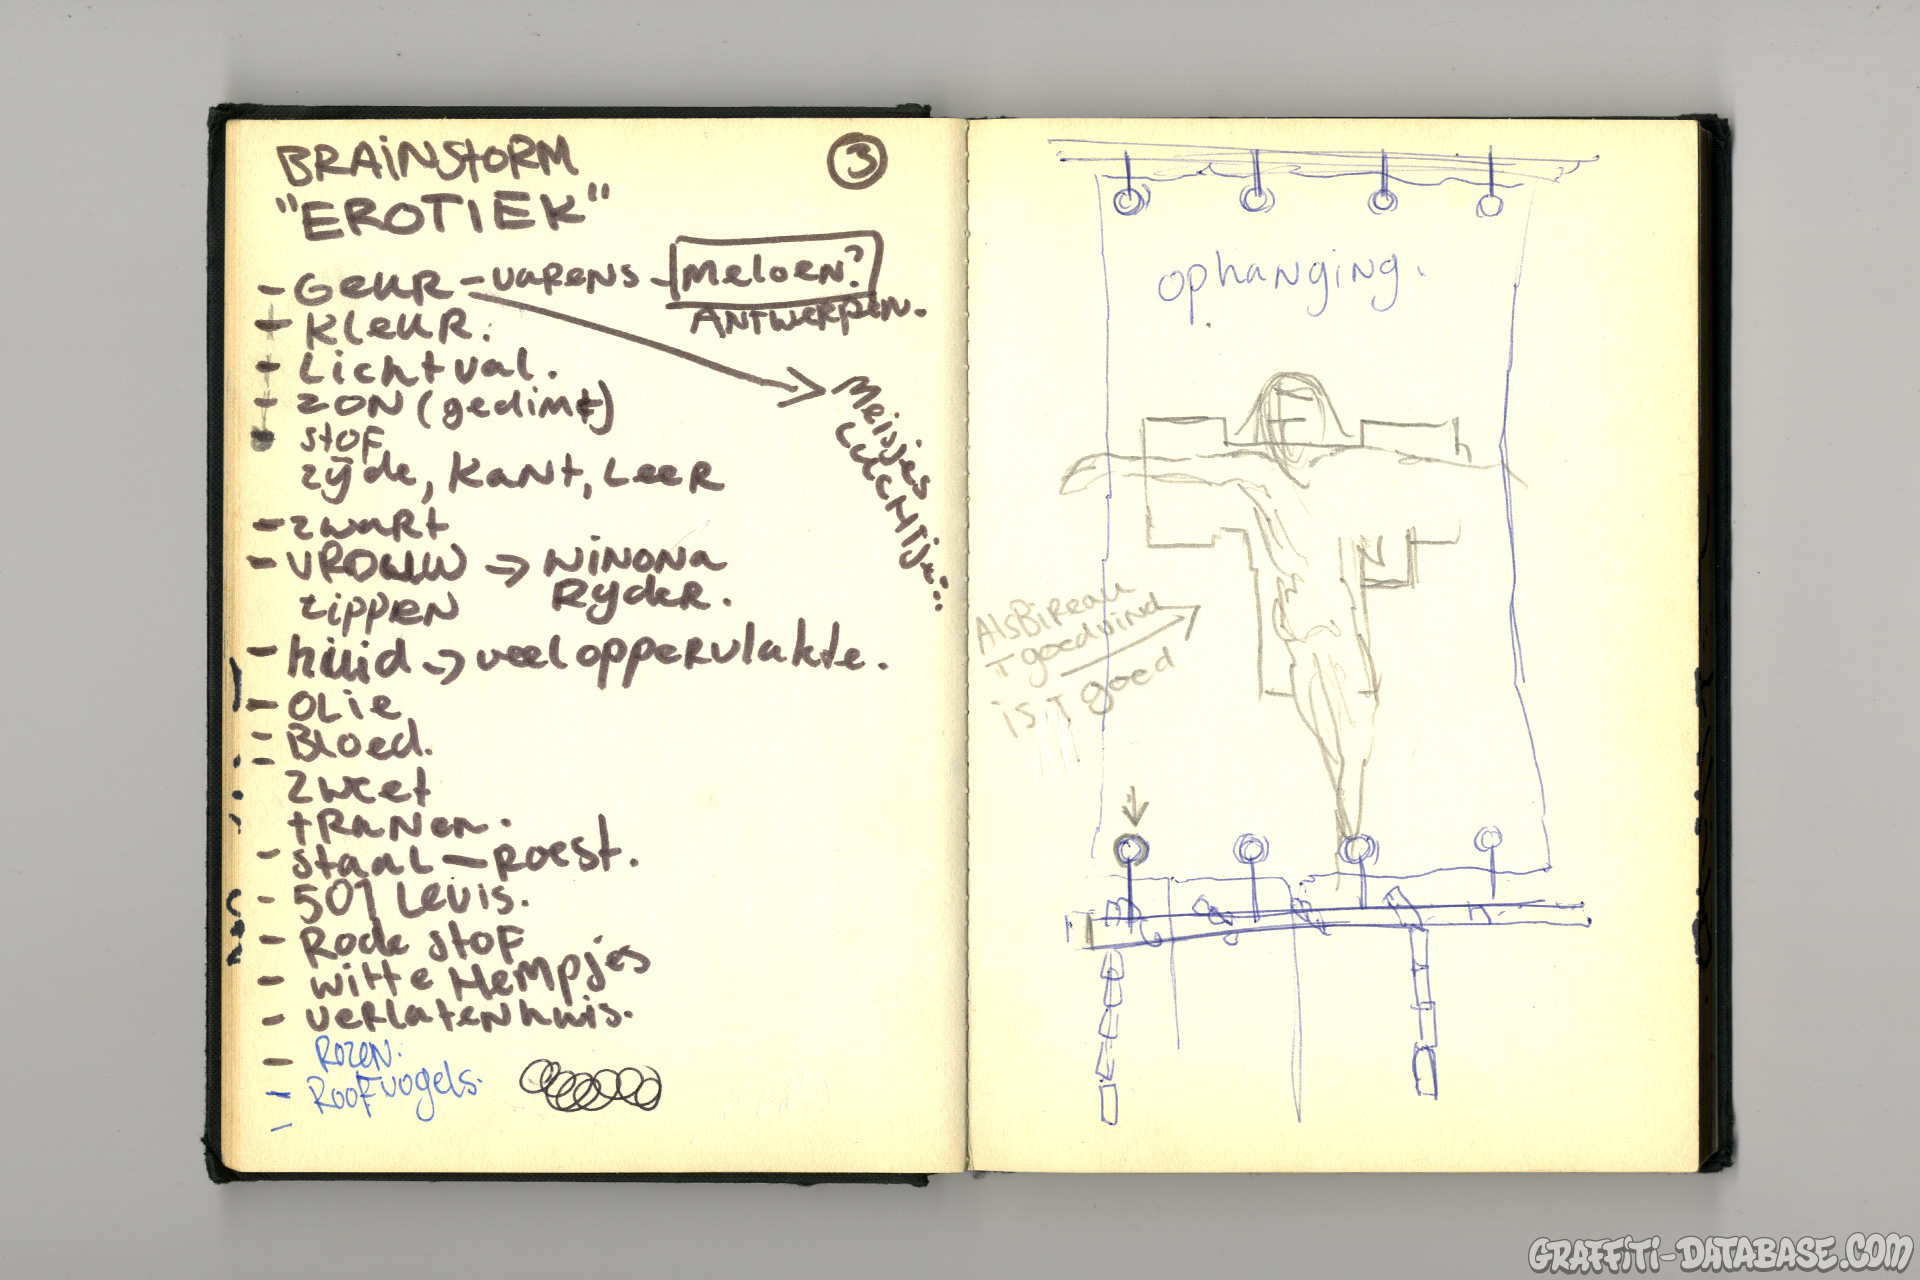 BRAINSTORM
"EROTIEK"
3
- GEUR - VARENS - MELOEN?
ANTWERPEN.
- KLEUR.
- Lichtval.
- ZON (gedimt)
Meisjes
LUCHTJE..
- Stof
zijde, KANT, LEER
- zwart
- VROUW -> WINONA
LIPPEN RYDER.
- huid -> veel oppervlakte.
- OLIE
- Bloed.
- zweet
tranen.
- staal - ROEST.
- 501 Levis.
- Rode stof
- witte Hempjes
- verlaten huis.
- Rozen.
- Roofvogels.
-
ophanging.
AlsBireau
T goedvind
is T goed
GRAFFITI-DATABASE.COM